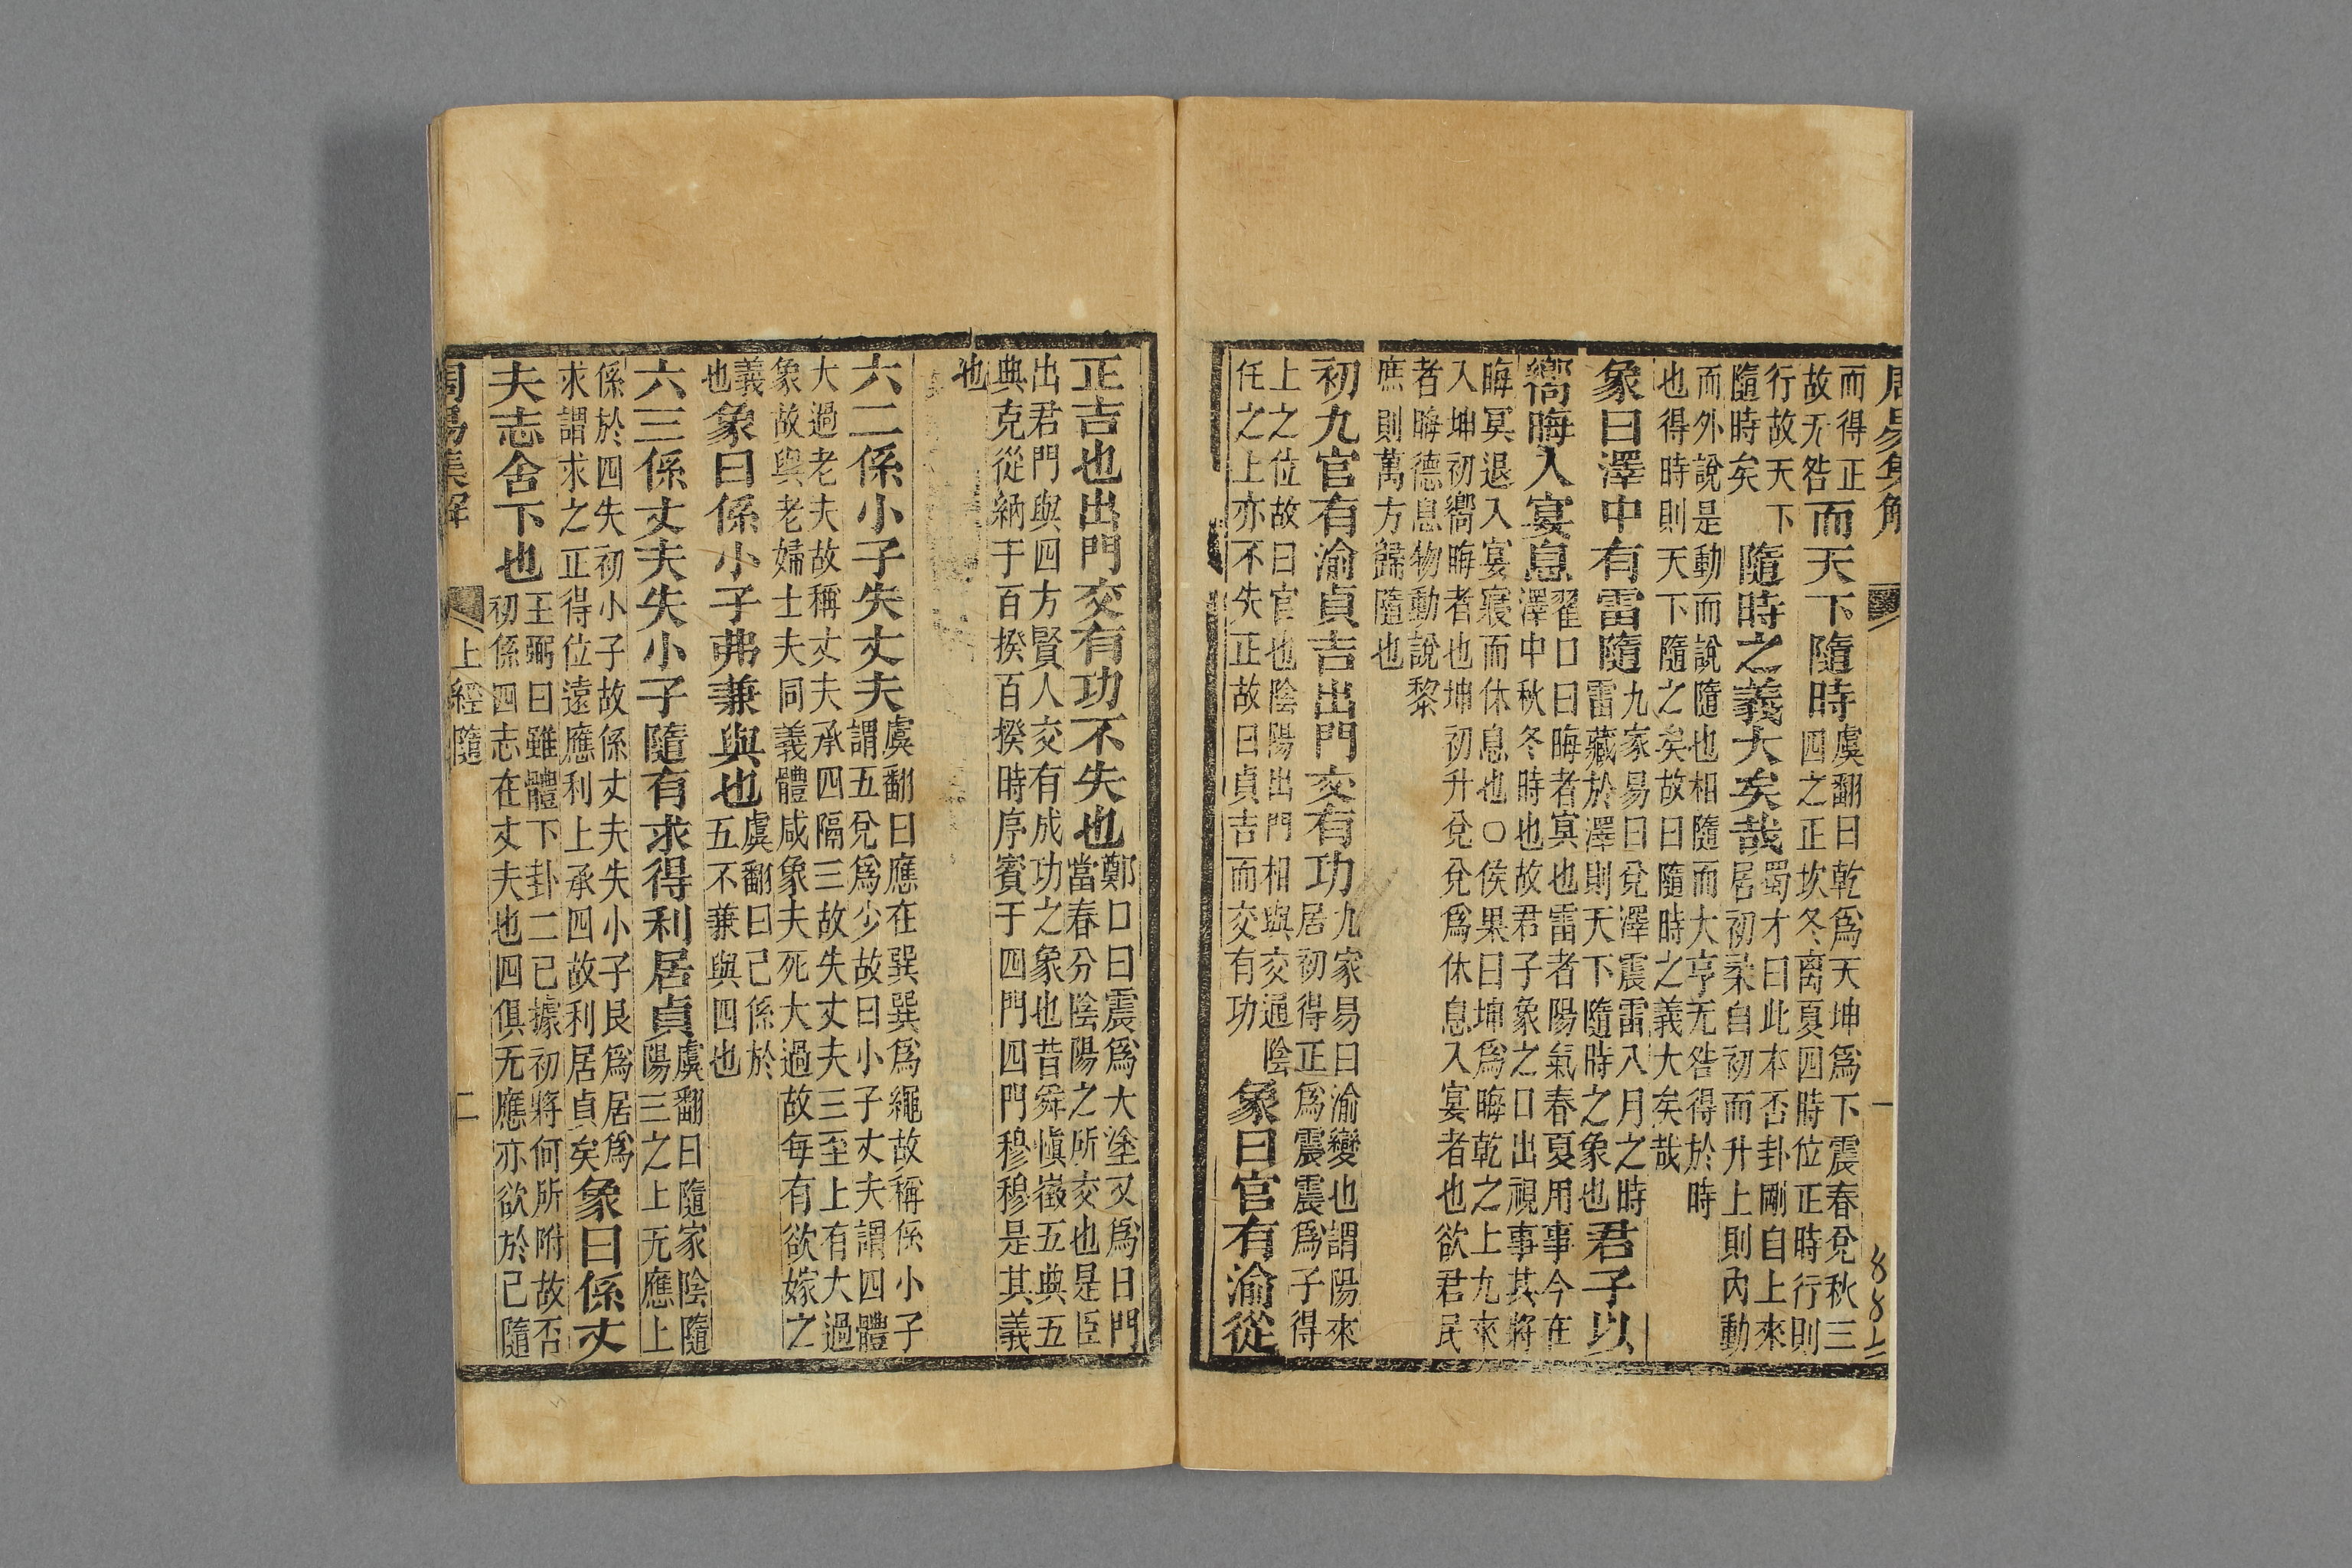 周易集解
一
而得正
故无咎而天下隨時虞翻曰乾爲天坤爲下震春兌秋三
四之正坎冬离夏四時位正時行則
行故天下
隨時矣隨時之義大矣哉蜀才曰此本否卦剛自上來
居初柔自初而升上則內動
而外說是動而說隨也相隨而大亨无咎得於時
也得時則天下隨之矣故曰隨時之義大矣哉
象曰澤中有雷隨九家易曰兌澤震雷八月之時
雷藏於澤則天下隨時之象也君子以
嚮晦入宴息翟口曰晦者冥也雷者陽氣春夏用事今在
澤中秋冬時也故君子象之口出視事其將
晦冥退入宴寢而休息也○侯果曰坤爲晦乾之上九來
入坤初嚮晦者也坤初升兌兌爲休息入宴者也欲君民
者晦德息物動說黎
庶則萬方歸隨也
初九官有渝貞吉出門交有功九家易曰渝變也謂陽來
居初得正爲震震爲子得
上之位故曰官也陰陽出門相與交通陰
任之上亦不失正故曰貞吉而交有功象曰官有渝從
正吉也出門交有功不失也鄭口曰震爲大塗又爲日門
當春分陰陽之所交也是臣
出君門與四方賢人交有成功之象也昔舜愼徽五典五
典克從納于百揆百揆時序賓于四門四門穆穆是其義
也
六二係小子失丈夫虞翻曰應在巽巽爲繩故稱係小子
謂五兌爲少故曰小子丈夫謂四體
大過老夫故稱丈夫承四隔三故失丈夫三至上有大過
象故與老婦士夫同義體咸象夫死大過故每有欲嫁之
義
也象曰係小子弗兼與也虞翻曰己係於
五不兼與四也
六三係丈夫失小子隨有求得利居貞虞翻曰隨家陰隨
陽三之上无應上
係於四失初小子故係丈夫失小子艮爲居爲
求謂求之正得位遠應利上承四故利居貞矣象曰係丈
夫志舍下也王弼曰雖體下卦二已據初將何所附故否
初係四志在丈夫也四俱无應亦欲於己隨
周易集解
上經隨
二